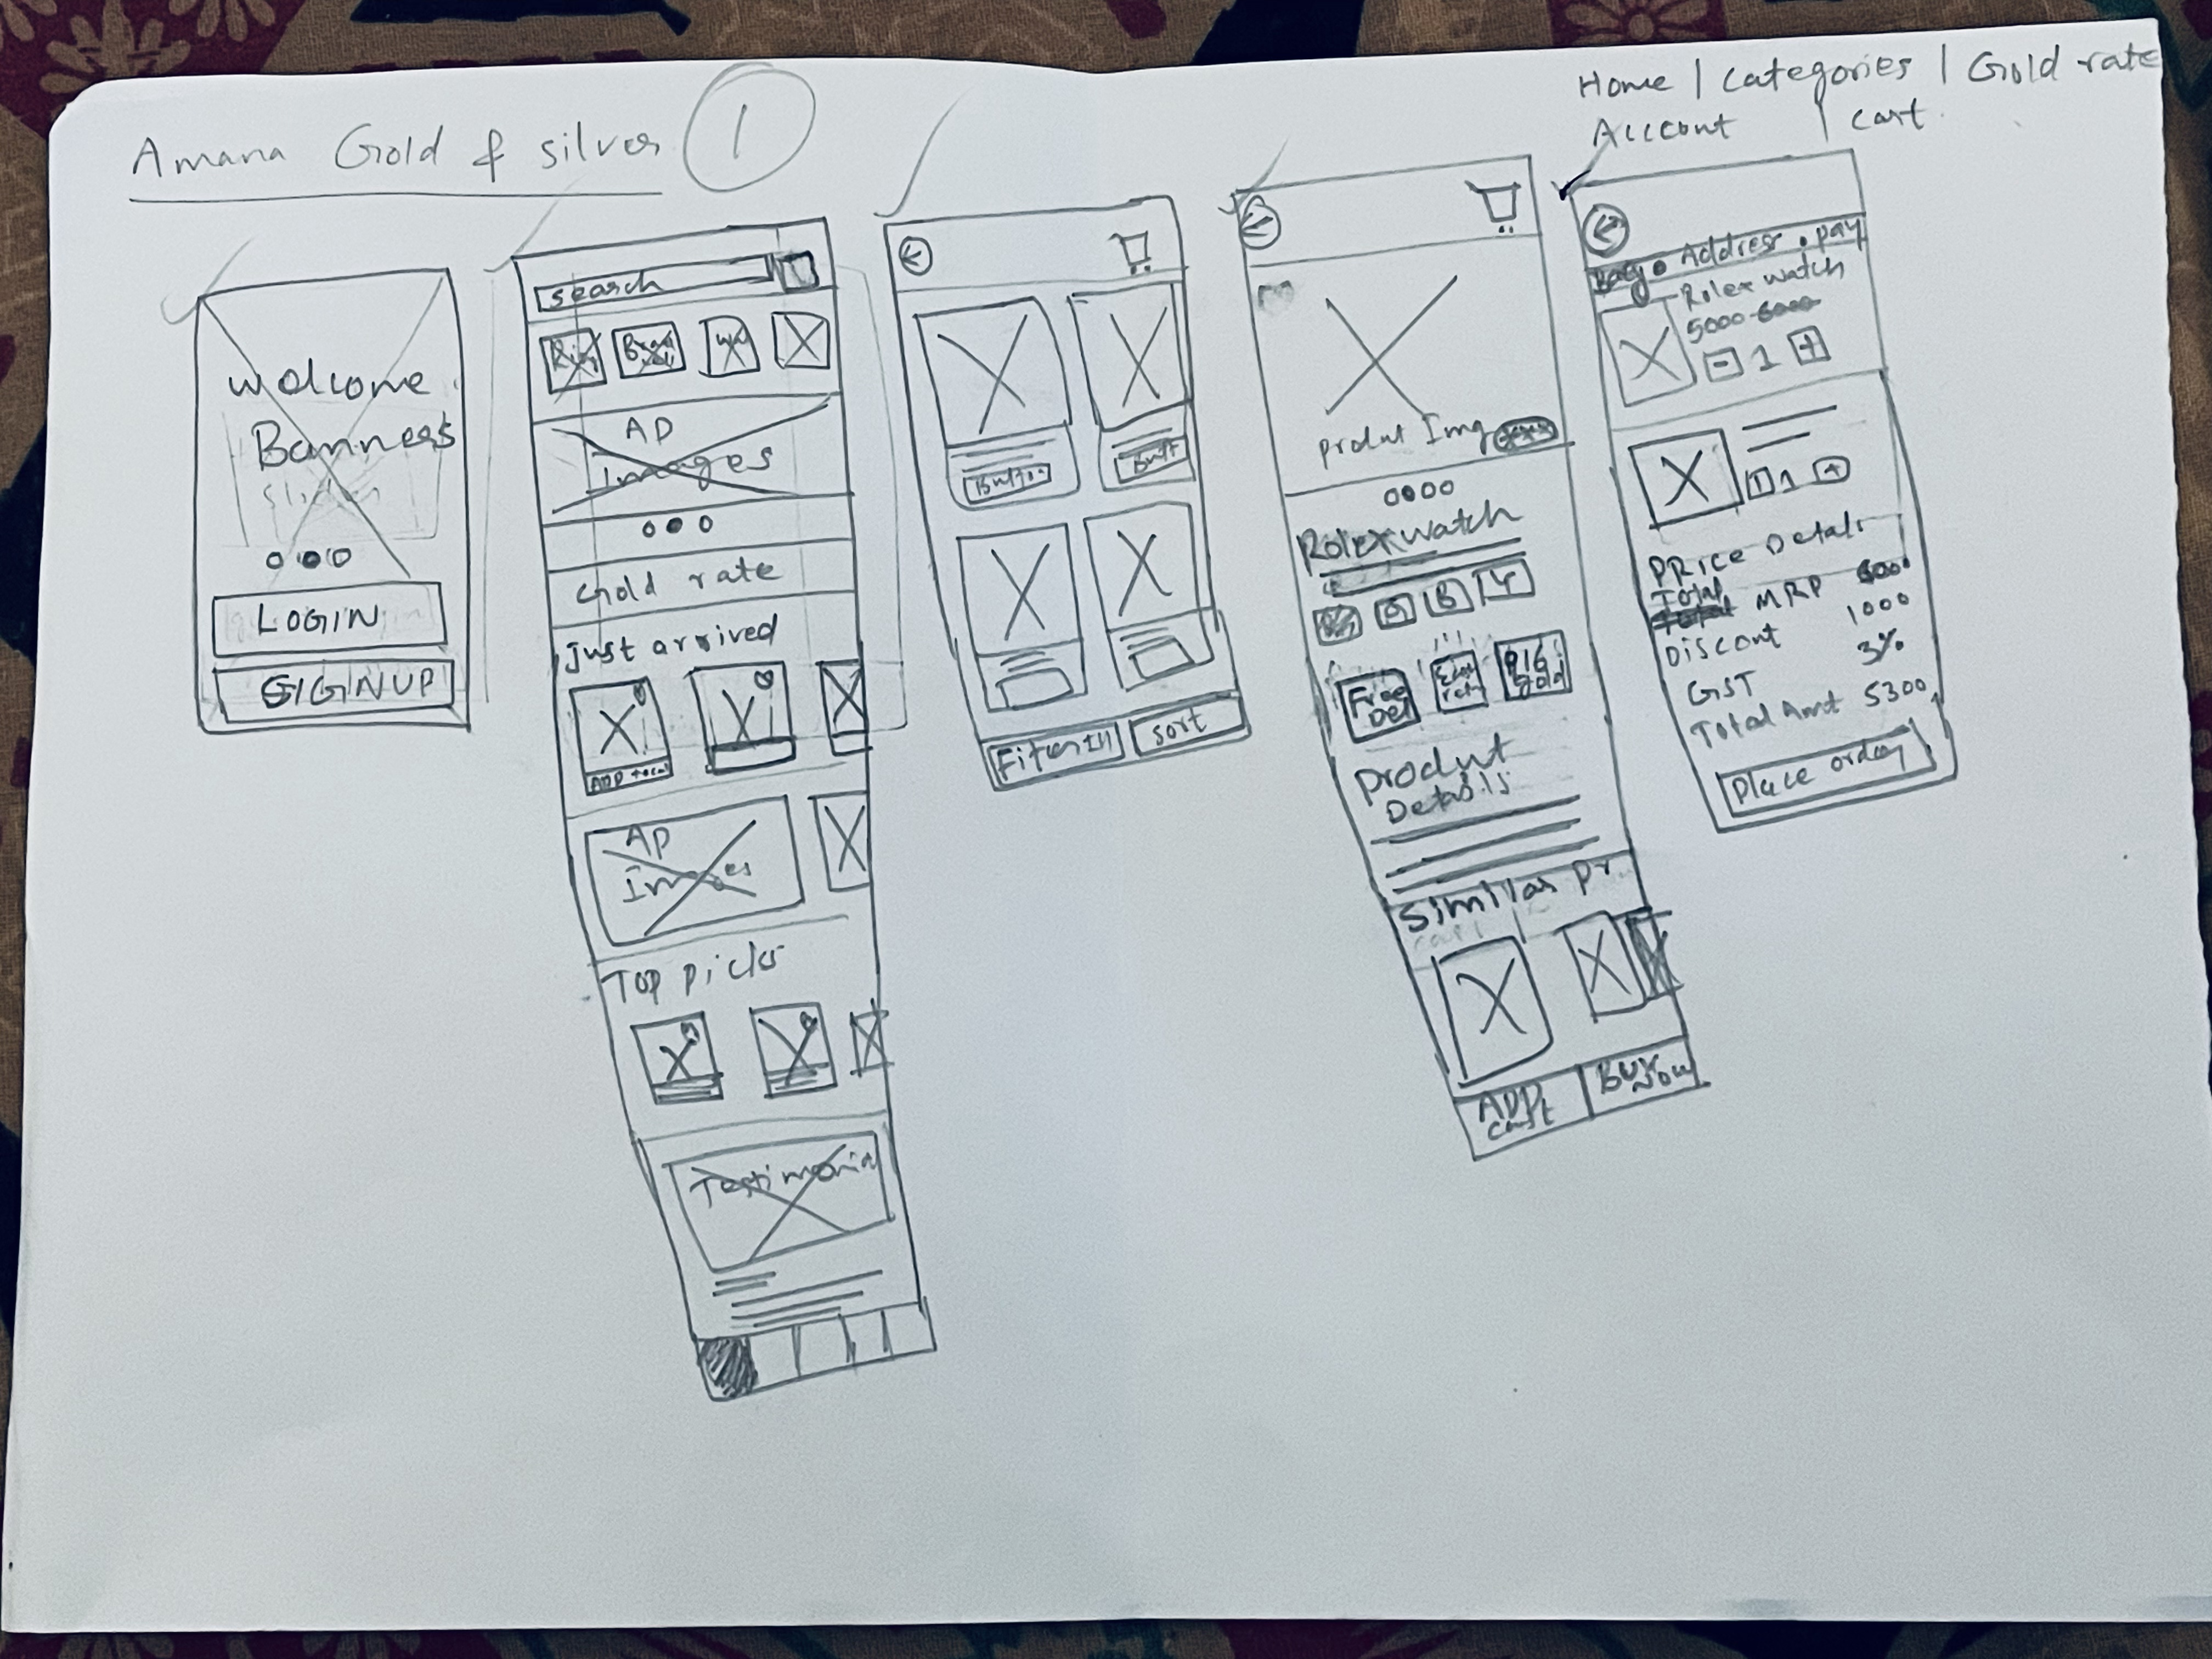 Amana Gold & silver 1
Home | Categories | Gold rate
Account | cart
Welcome
Banners
Slider
LOGIN
SIGINUP
search
Ring
AD
Images
Gold rate
Just arrived
ADD to cart
AD
Images
Top picks
Testimonial
Button
Butt
Filter
sort
produt Img
Rolex watch
B
Y
Free
Del
916
gold
Produt
Details
Similar pr
ADD t
cart
BUY
Now
Bag • Address • pay
Rolex watch
5000 6000
- 1 +
1 +
PRice Detail
Total MRP 6000
Discont 1000
GST 3%
Total Amt 5300
Place order